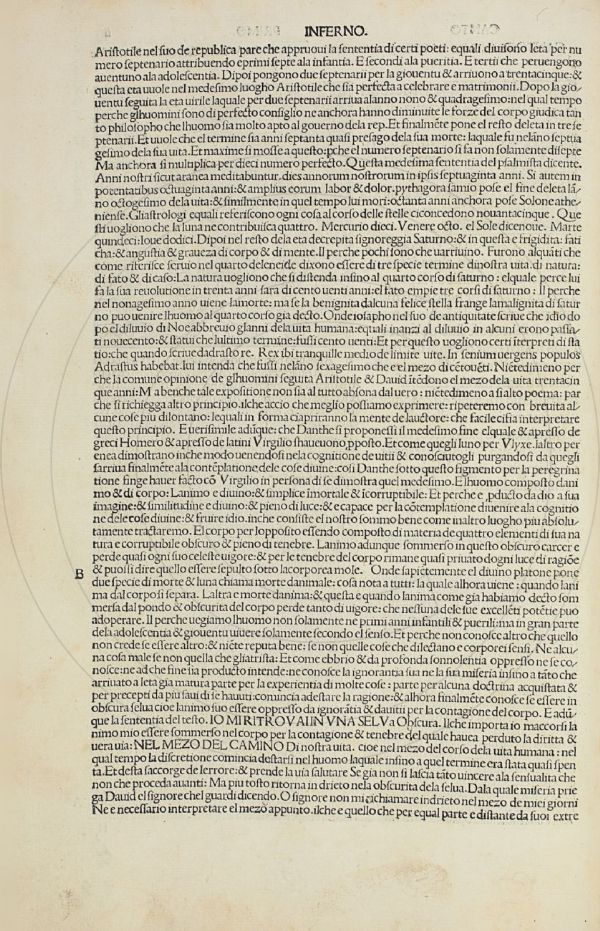 INFERNO.
Aristotile nel suo de republica pare che appruoui la sententia di certi poeti: equali diuisorso leta per nu
mero septenario attribuendo eprimi septe ala infantia. E secondi ala pueritia. E tertii che peruengono
auentuno ala adolescentia. Dipoi pongono due septenarii per la giouentu & arriuono a trentacinque: &
questa eta uuole nel medesimo luogho Aristotile che sia perfecta a celebrare e matrimonii. Dopo la gio
uentu seguita la eta uirile laquale per due septenarii arriua alanno nono & quadragesimo: nel qual tempo
perche glhuomini sono di perfecto consiglio ne anchora hanno diminuite le forze del corpo giudica tan
to philosopho che lhuomo sia molto apto al gouerno dela rep. Et finalmēte pone el resto deleta in tre se
ptenarii. Et uuole che el termine sia anni septanta quasi presago dela sua morte: laquale fu nelāno septua
gesimo dela sua uita. Et maxime si mosse a questo: pche el numero septenario si fa non solamente di septe
Ma anchora si multiplica per dieci numero perfecto. Questa medesima sententia del psalmista dicente.
Anni nostri sicut aranea meditabuntur. dies annorum nostrorum in ipsis septuaginta anni. Si autem in
potentatibus octuaginta anni: & amplius eorum labor & dolor. pythagora samio pose el fine deleta lā/
no octogesimo dela uita: & similmente in quel tempo lui mori: octanta anni anchora pose Solone athe/
niense. Gliastrologi equali referiscono ogni cosa al corso delle stelle ciconcedono nouantacinque. Que
sti uogliono che la luna ne contribuisca quattro. Mercurio dieci. Venere octo. el Sole dicenoue. Marte
quindeci: Ioue dodici. Dipoi nel resto dela eta decrepita signoreggia Saturno: & in questa e frigidita: fati
cha: & angustia & graueza di corpo & di mente. Il perche pochi sono che uarriuino. Furono alquāti che
come riferisce seruio nel quarto deleneide dixono essere di tre specie termine dinostra uita. di natura:
di fato & di caso. La natura uogliono che si distenda insino al quarto corso di saturno: elquale perce lui
fa la sua reuolutione in trenta anni sara di cento uenti anni: el fato empie tre corsi di saturno: Il perche
nel nonagesimo anno uiene lamorte: ma se la benignita dalcuna felice stella frange lamalignita di satur
no puo uenire lhuomo al quarto corso gia decto. Onde iosapho nel suo de antiquitate scriue che idio do
po el diluuio di Noe abbreuio glanni dela uita humana: equali inanzi al diluuio in alcuni erono passa/
ti nouecento: & statui che lultimo termine: fussi cento uenti: Et per questo uogliono certi īterpreti di sta
tio: che quando scriue dadrasto re. Rex ibi tranquille medio de limite uite. In senium uergens populos
Adrastus habebat. lui intenda che fussi nelāno sexagesimo che e el mezo di cētouēti. Niētedimeno per
che la comune opinione de glhuomini seguita Aristotile & Dauid ītēdono el mezo dela uita trentacin
que anni: Ma benche tale expositione non sia al tutto absona dal uero: nietedimeno a si alto poema: par
che si richiegga altro principio. ilche accio che meglio possiamo exprimere: ripeteremo con breuita al/
cune cose piu dilontano: lequali in forma ciapriranno la mente de lauctore: che facile cisia interpretare
questo principio. E uerisimile adūque: che Danthe si proponessi il medesimo fine elquale & apresso de
greci Homero & apresso de latini Virgilio shaueuono pposto. Et come quegli luno per Vlyxe. laltro per
enea dimostrano inche modo uenendosi nela cognitione de uitii & conosciutogli purgandosi da quegli
sarriua finalmēte ala contēplatione dele cose diuine: cosi Danthe sotto questo figmento per la peregrina
tione finge hauer facto cō Virgilio in persona di se dimostra quel medesimo. E lhuomo composto dani
mo & di corpo: Lanimo e diuino: & simplice imortale & īcorruptibile: Et perche e pducto da dio a sua
imagine: & similitudine e diuino: & pieno di luce: & e capace per la cōtemplatione diuenire ala cognitio
ne dele cose diuine: & fruire idio. inche consiste el nostro sommo bene come inaltro luogho piu absolu/
tamente tractaremo. El corpo per lopposito essendo composto di materia de quattro elementi di sua na
tura e corruptibile obscuro & pieno di tenebre. Lanimo adunque sommerso in questo obscuro carcer e
perde quasi ogni suo celeste uigore: & per le tenebre del corpo rimane quasi priuato dogni luce di ragiōe
& puossi dire quello essere sepulto sotto lacorporea mole. Onde sapietemente el diuino platone pone
B
due specie di morte & luna chiama morte danimale: cosa nota a tutti: la quale alhora uiene: quando lani
ma dal corpo si separa. Laltra e morte danima: & questa e quando lanima come gia habiamo decto som
mersa dal pondo & obscurita del corpo perde tanto di uigore: che nessuna dele sue excellēti potētie puo
adoperare. Il perche uegiamo lhuomo non solamente ne primi anni infantili & puerili: ma in gran parte
dela adolescentia & giouentu uiuere solamente secondo el senso. Et perche non conosce altro che quello
non crede se essere altro: & niēte reputa bene: se non quelle cose che dilectano e corporei sensi. Ne alcu/
na cosa male se non quella che gliatrista: Et come ebbrio & da profonda sonnolentia oppresso ne se co/
nosce: ne ad che fine sia producto intende: ne conosce la ignorantia sua ne la sua miseria insino a tāto che
arriuato a leta gia matura parte per la experientia di molte cose: parte per alcuna doctrina acquistata &
per precepti da piu saui di se hauuti: comincia adestare la ragione: & alhora finalmēte conosce se essere in
obscura selua cioe lanimo suo essere oppresso da ignorātia & dauitii per la contagione del corpo. E adū/
que la sententia del testo. IO MI RITROVAI IN VNA SELVA Obscura. Ilche importa io maccorsi la
nimo mio essere sommerso nel corpo per la contagione & tenebre del quale hauea perduto la diritta &
uera uia: NEL MEZO DEL CAMINO Di nostra uita. cioe nel mezo del corso dela uita humana: nel
qual tempo la discretione comincia destarsi nel huomo laquale insino a quel termine era stata quasi spen
ta. Et desta saccorge de lerrore: & prende la uia salutare Se gia non si lascia tāto uincere ala sensualita che
non che proceda auanti: Ma piu tosto ritorna in drieto nela obscurita dela selua. Dala quale miseria prie
ga Dauid el signore chel guardi dicendo. O signore non mi richiamare indrieto nel mezo de miei giorni
Ne e necessario interpretare el mezo appunto. ilche e quello che per equal parte e distante da suoi extre